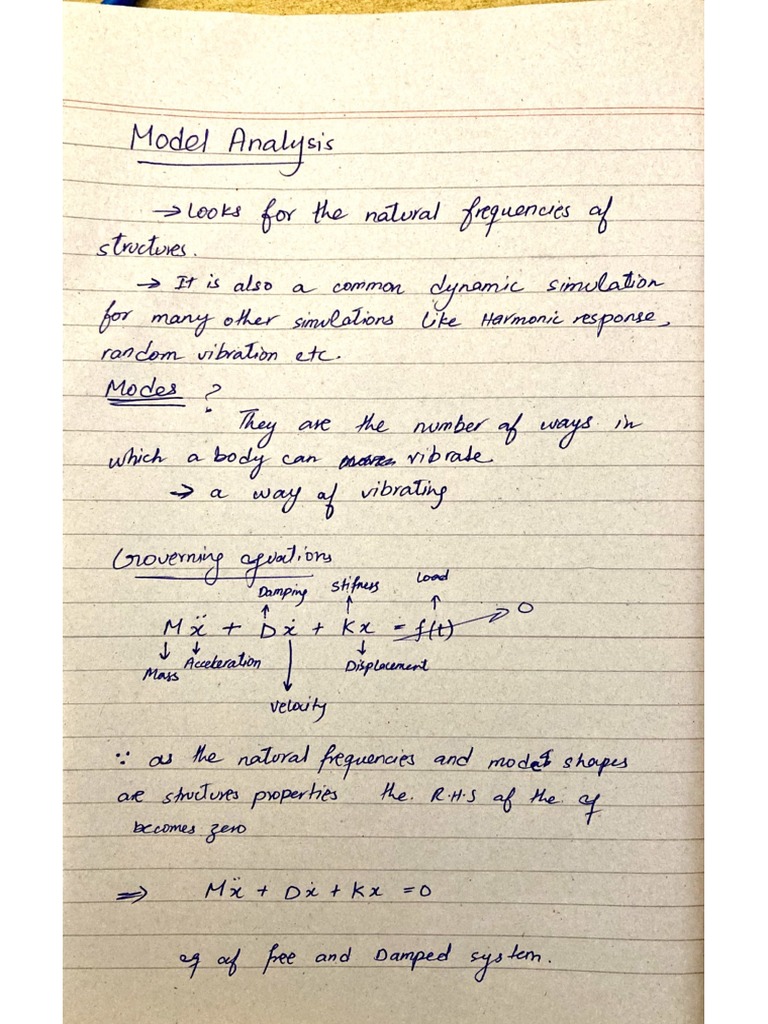 Model Analysis
→ Looks for the natural frequencies of
structures.
→ It is also a common dynamic simulation
for many other simulations like Harmonic response,
random vibration etc.
Modes ?
They are the number of ways in
which a body can vibrate
→ a way of vibrating
Governing equations
Damping Stifness Load
Mẍ + Dẋ + Kx = f(t) → 0
Mass Acceleration Displacement
Velocity
∵ as the natural frequencies and modes shapes
are structures properties the R.H.S of the eq
becomes zero
⇒ Mẍ + Dẋ + Kx = 0
eq of free and Damped system.